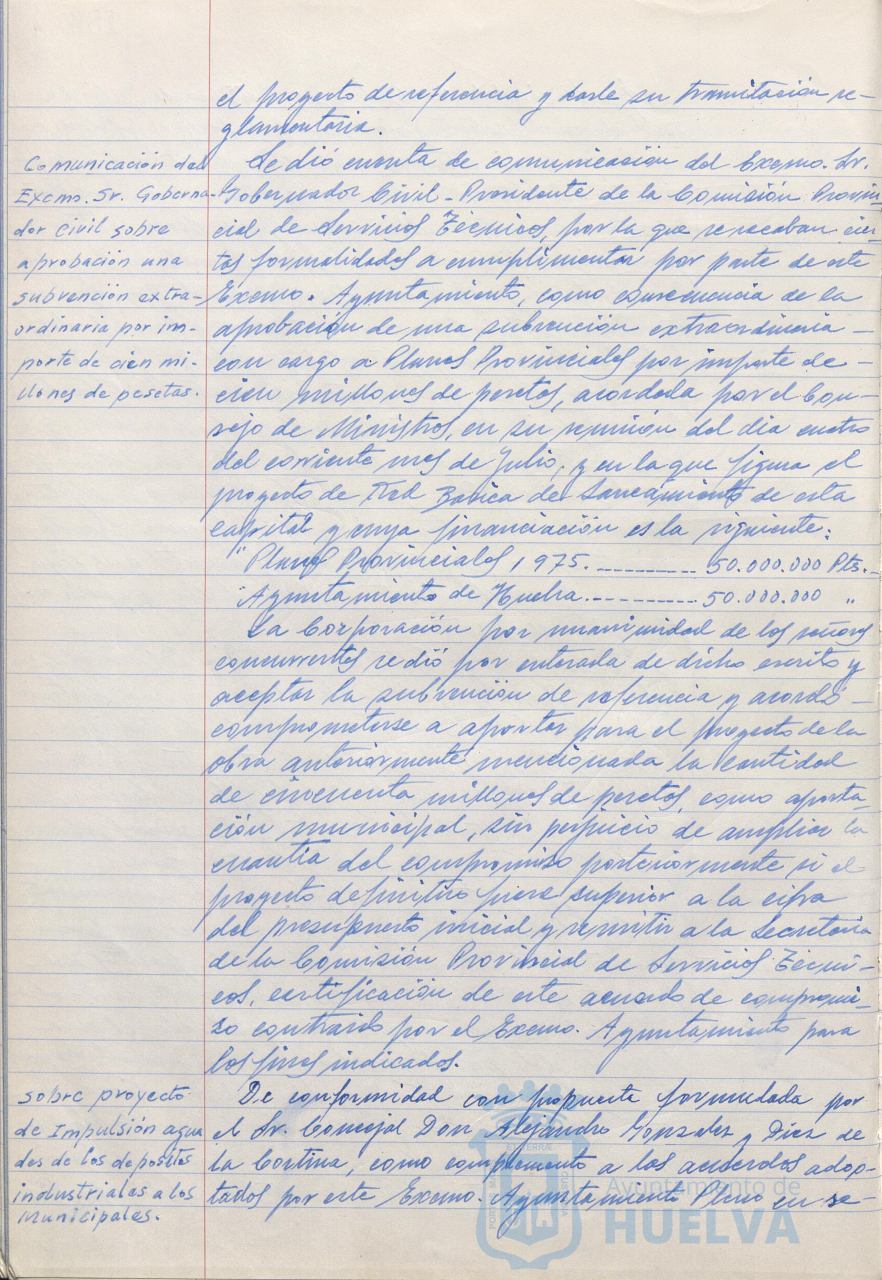 el proyecto de referencia y darle su tramitación re-
glamentaria.
Comunicación del
Excmo. Sr. Goberna-
dor civil sobre
aprobación una
subvención extra-
ordinaria por im-
porte de cien mi-
llones de pesetas.
Se dió cuenta de comunicación del Excmo. Sr.
Gobernador Civil-Presidente de la Comisión Provin-
cial de Servicios Técnicos, por la que se recaban cier-
tas formalidades a cumplimentar por parte de este
Excmo. Ayuntamiento, como consecuencia de la
aprobación de una subvención extraordinaria -
con cargo a Planes Provinciales por importe de -
cien millones de pesetas, acordada por el Con-
sejo de Ministros, en su reunión del día cuatro
del corriente mes de Julio, y en la que figura el
proyecto de Red Básica de Saneamiento de esta
capital y cuya financiación es la siguiente:
"Planes Provinciales 1975. ---------- 50.000.000 Pts.-
Ayuntamiento de Huelva.---------- 50.000.000 "
La Corporación por unanimidad de los señores
concurrentes se dió por enterada de dicho escrito y
aceptar la subvención de referencia y acordó -
comprometerse a aportar para el proyecto de la
obra anteriormente mencionada la cantidad
de cincuenta millones de pesetas, como aporta-
ción municipal, sin perjuicio de ampliar la
cuantía del compromiso posteriormente si el
proyecto definitivo fuera superior a la cifra
del presupuesto inicial, y remitir a la Secretaria
de la Comisión Provincial de Servicios Técni-
cos, certificación de este acuerdo de compromi-
so contraido por el Excmo. Ayuntamiento para
los fines indicados.
sobre proyecto
de Impulsión agua
des de los depositos
industriales a los
Municipales.
De conformidad con propuesta formulada por
el Sr. Concejal Don Alejandro Gonzalez y Diez de
la Cortina, como complemento a los acuerdos adop-
tados por este Excmo. Ayuntamiento Pleno en se-
Ayuntamiento de
HUELVA